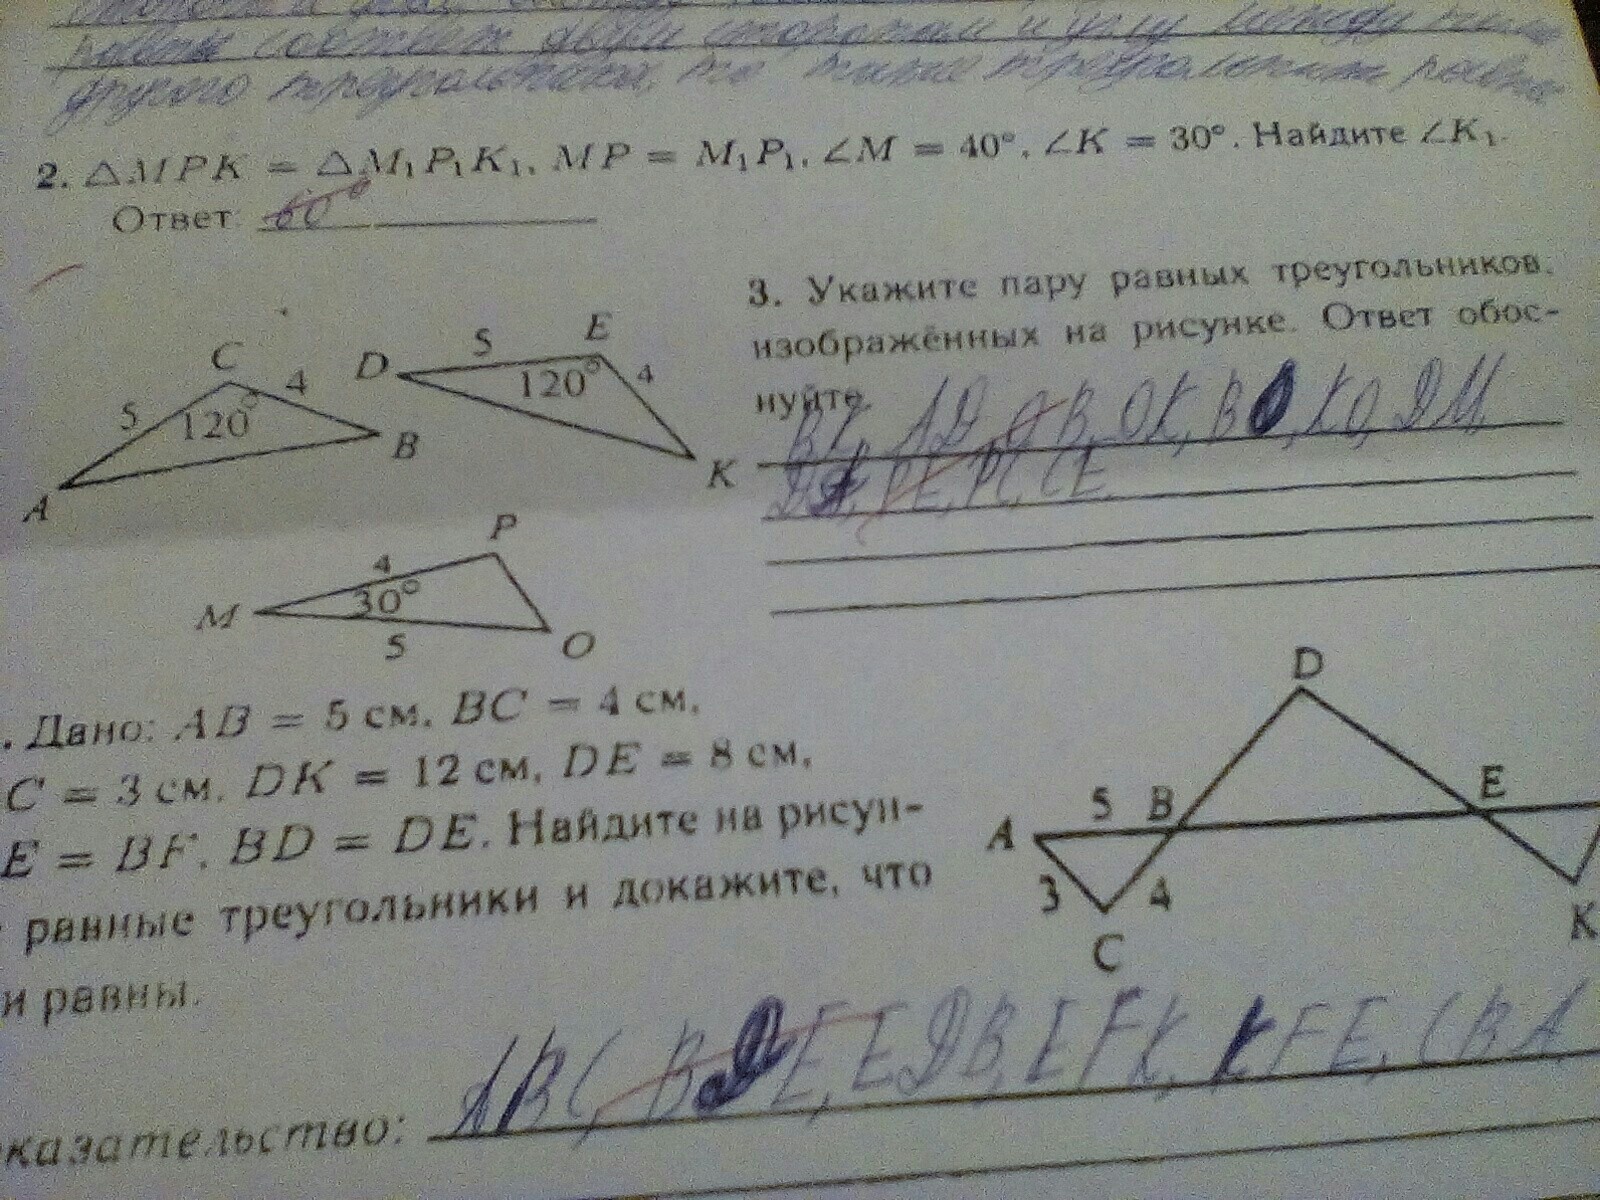 равны соответ двум сторонам и углу между ними
другого треугольника, то такие треугольники равны
2. △MPK = △M₁P₁K₁, MP = M₁P₁, ∠M = 40°, ∠K = 30°. Найдите ∠K₁.
Ответ: 60°
3. Укажите пару равных треугольников,
изображённых на рисунке. Ответ обос-
нуйте.
AB, OB, OK, BO, KO, DM,
PE, PC, CE.
C 4 5 120° B A
D 5 E 120° 4 K
P 4 M 30° 5 O
. Дано: AB = 5 см, BC = 4 см,
C = 3 см, DK = 12 см, DE = 8 см,
E = BF, BD = DE. Найдите на рисун-
равные треугольники и докажите, что
и равны.
D
A 5 B E
3 4 K
C
ABC, BDE, EDB, EFK, KFE, CBA
казательство: